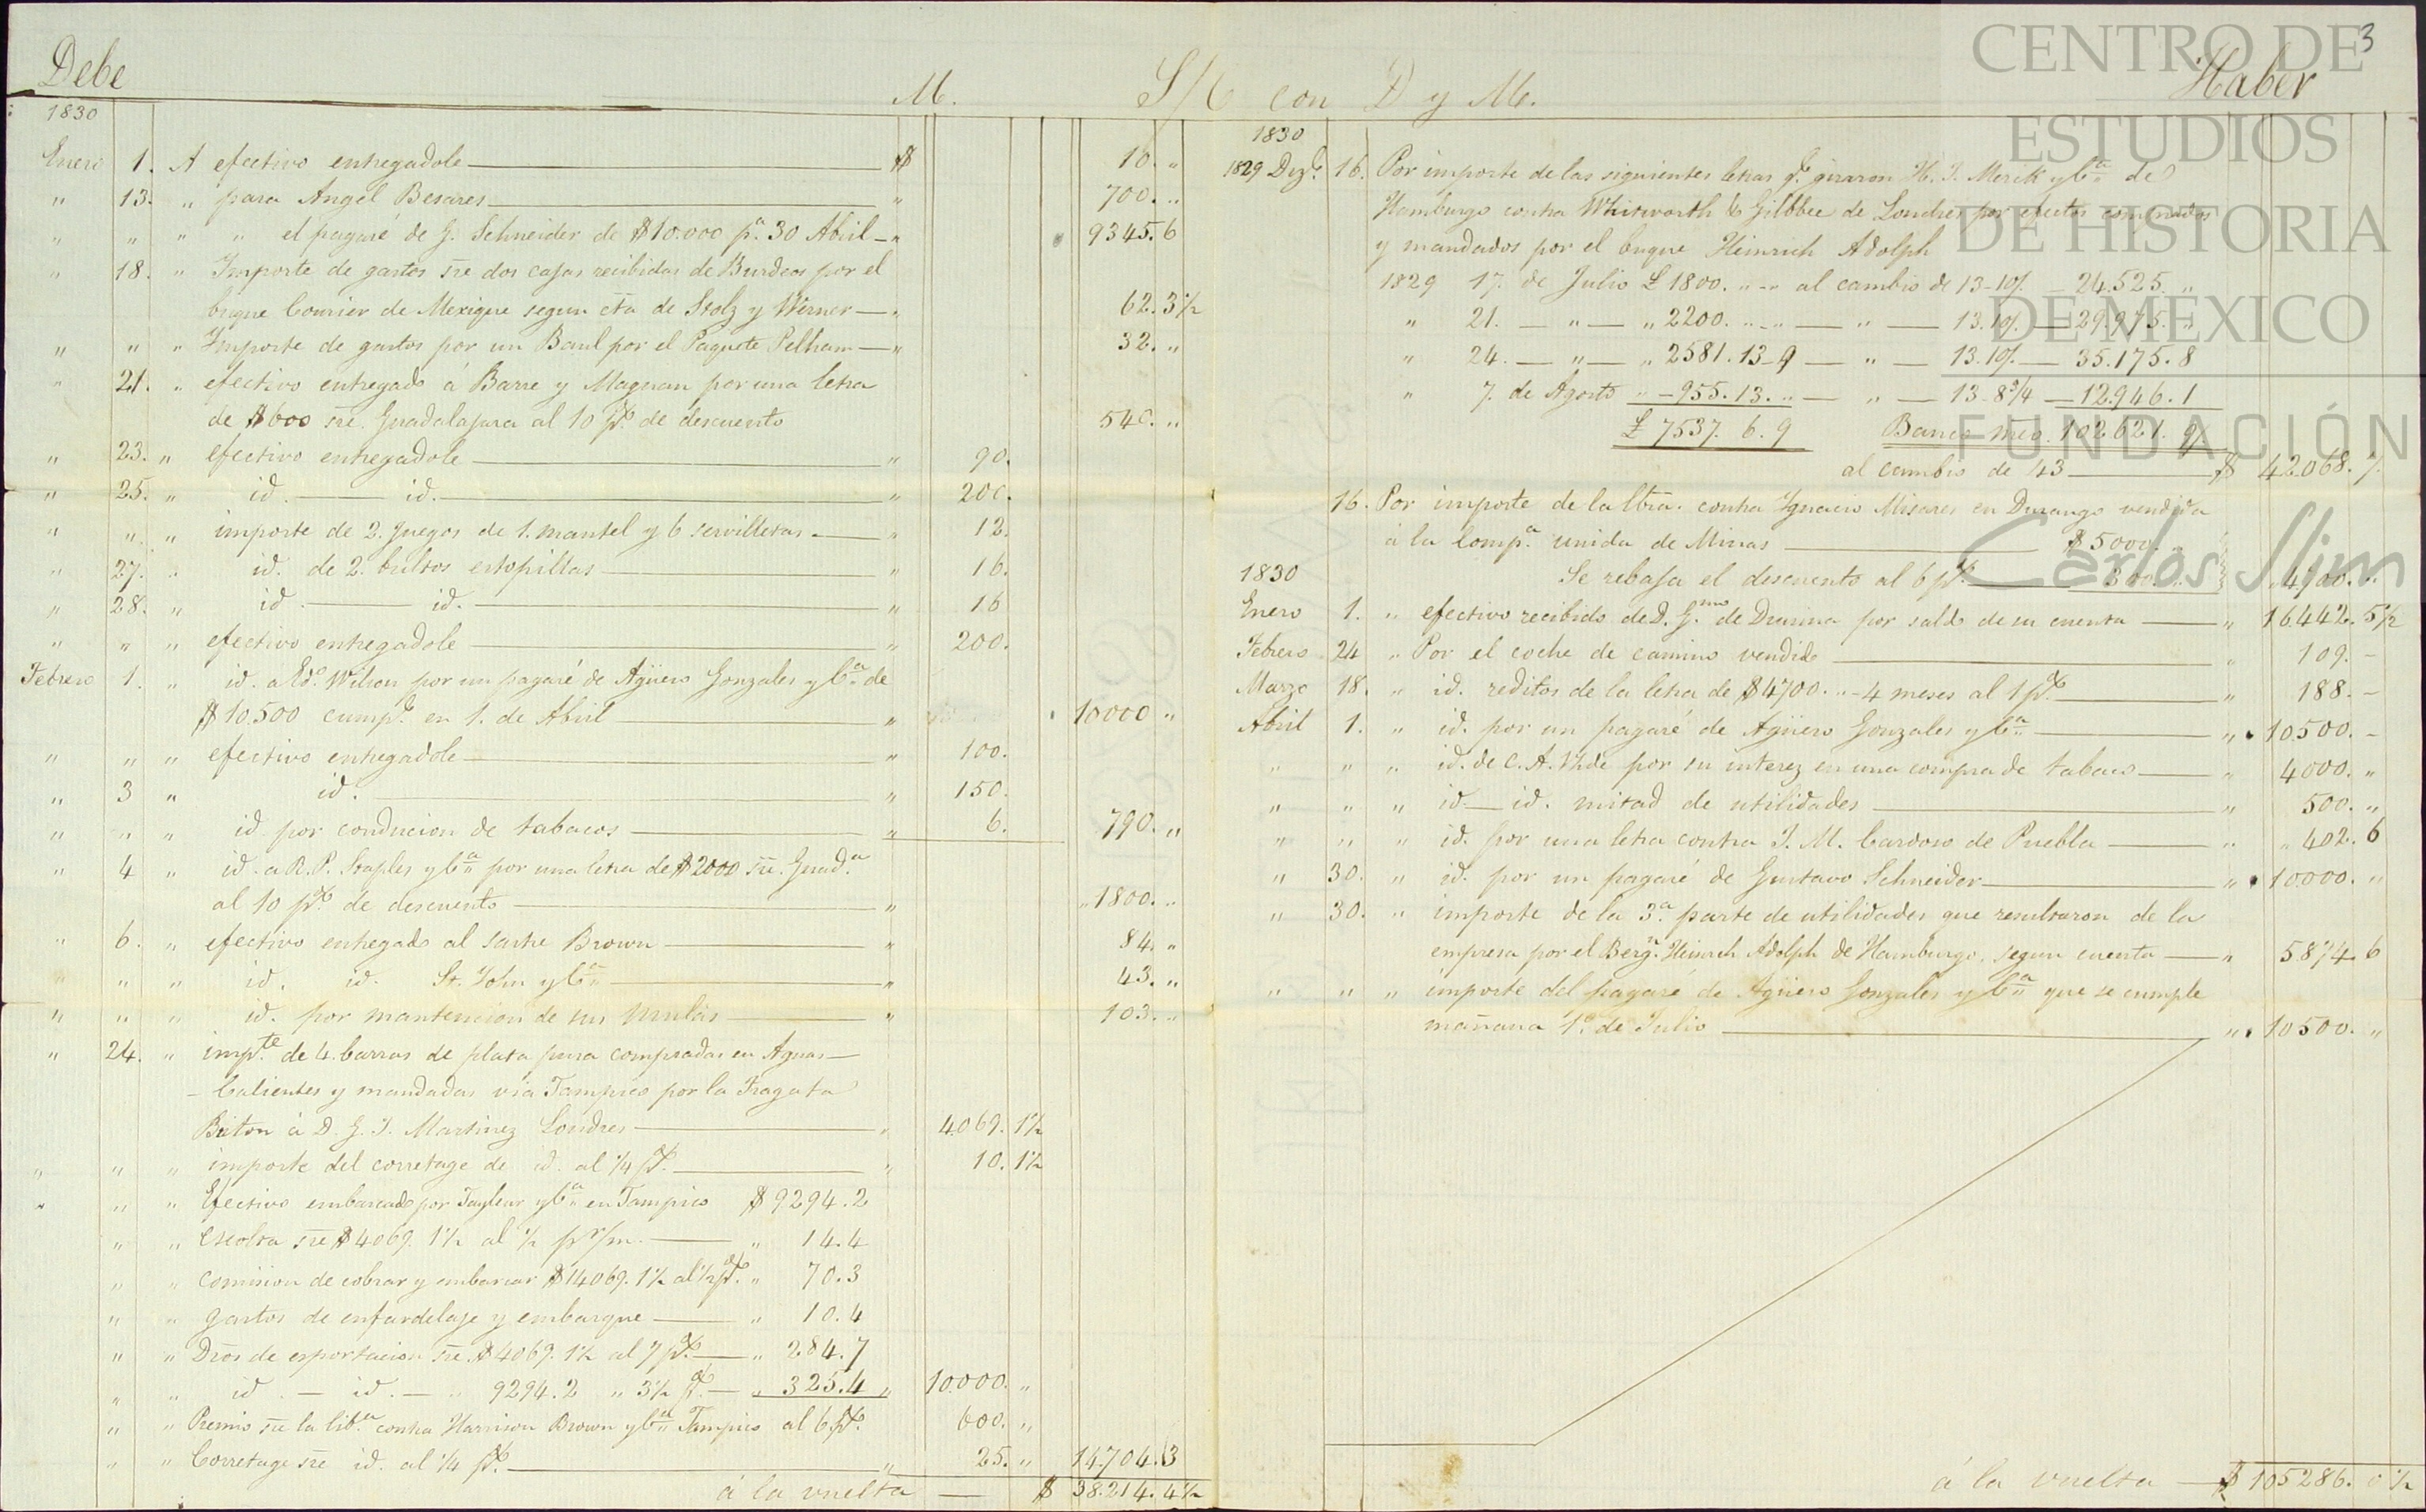 Debe
M.
S/C con D y M.
Haber
3
1830
Enero 1. A efectivo entregadole $ 10. "
" 13. " para Angel Besares " 700. "
" " " " el pagaré de G. Schneider de $10.000 pa. 30 Abril " 9345. 6
" 18. " Importe de gastos sre dos cajas recibidas de Burdeos por el
buque Courier de Mexique segun cta de Stolz y Werner " 62. 3½
" " " Importe de gastos por un Baul por el Paquete Pelham " 32. "
" 21. " efectivo entregado á Barre y Magnan por una letra
de $600 sre. Guadalajara al 10 p%. de descuento 540. "
" 23. " efectivo entregadole " 90.
" 25. " id. id. " 200.
" " " importe de 2. Juegos de 1. mantel y 6 servilletas " 12.
" 27. " id. de 2. bultos estopillas " 16.
" 28. " id. id. " 16
" " " efectivo entregadole " 200.
Febrero 1. " id. a Edo. Wilson por un pagaré de Agüero Gonzales y Ca. de
$10.500 cumpo. en 1. de Abril " 10000 "
" " " efectivo entregadole " 100.
" 3 " id. " 150.
" " " id por conducion de tabacos " 6. 790. "
" 4 " id. a R. P. Staples y Ca. por una letra de $2000 sre. Guada.
al 10 p%. de descuento " " 1800. "
" 6. " efectivo entregado al sastre Brown " 84. "
" " " id. id. St. John y Ca. " 43. "
" " " id. por mantencion de sus mulas " 103. "
" 24. " impte. de 4. barras de plata pura compradas en Aguas
Calientes y mandadas via Tampico por la Fragata
Briton á D. G. J. Martinez Londres " 4.069. 1½
" " " importe del corretage de id. al ¼ p%. " 10. 1½
" " " Efectivo embarcado por Tayleur y Ca. en Tampico $ 9294. 2
" " escolta sre $4069. 1½ al ½ p r/m. " 14. 4
" " comision de cobrar y embarcar $14069. 1½ al ½ p%. " 70. 3
" " gastos de enfardelaje y embarque " 10. 4
" " Dros de esportacion sre. $4069. 1½ al 7 p%. " 284. 7
" " id. id. " 9294. 2 " 3½ p%. " 325. 4 " 10.000. "
" " Premio sre la liba. contra Harrison Brown y Ca. Tampico al 6 p%. 600. "
" " Corretage sre id. al ¼ p%. " 25. " 14.704. 3
á la vuelta $ 38.214. 4½
1830
1829 Dize. 16. Por importe de las siguientes letras qe. giraron H. J. Merck y Ca. de
Hamburgo contra Whitworth & Gilbbee de Londres por efectos comprados
y mandados por el buque Heinrich Adolph
1829 17. de Julio £ 1800. " - " al cambio de 13-10/. 24.525. "
" 21. " " 2200. " - " " 13. 10/. 29.975. "
" 24. " " 2581. 13-9 " 13. 10/. 35.175. 8
" 7. de Agosto " 955. 13. " " 13-8¾ 12.946. 1
£ 7537. 6. 9 Banco mco. 102621. 9/.
al cambio de 43 $ 42.068. 7.
16. Por importe de la ltra. contra Ygnacio Misares en Durango vendida
á la Compa. unida de Minas $ 5000. "
1830 Se rebaja el descuento al 6 p%. 300. " " 4700. "
Enero 1. " efectivo recibido de D. Gmo. de Drusina por saldo de su cuenta " 16442. 5½
Febrero 24 " Por el coche de camino vendido " 109. -
Marzo 18. " id. reditos de la letra de $4700. " - 4 meses al 1 p%. " 188. -
Abril 1. " id. por un pagaré de Agüero Gonzales y Ca. " 10500. -
" " " id. de C. A. Uhde por su interez en una compra de tabaco " 4000. "
" " " id. id. mitad de utilidades " 500. "
" " " id. por una letra contra J. M. Cardoso de Puebla " " 402. 6
" 30. " id. por un pagaré de Gustavo Schneider " 10000. "
" 30. " importe de la 3a. parte de utilidades que resultaron de la
empresa por el Bergn. Heinrich Adolph de Hamburgo, segun cuenta " 5874. 6
" " " importe del pagaré de Agüero Gonzales y Ca. que se cumple
mañana 1o. de Julio " 10500. "
á la vuelta $ 105286. 0½
CENTRO DE
ESTUDIOS
DE HISTORIA
DE MÉXICO
FUNDACIÓN
Carlos Slim